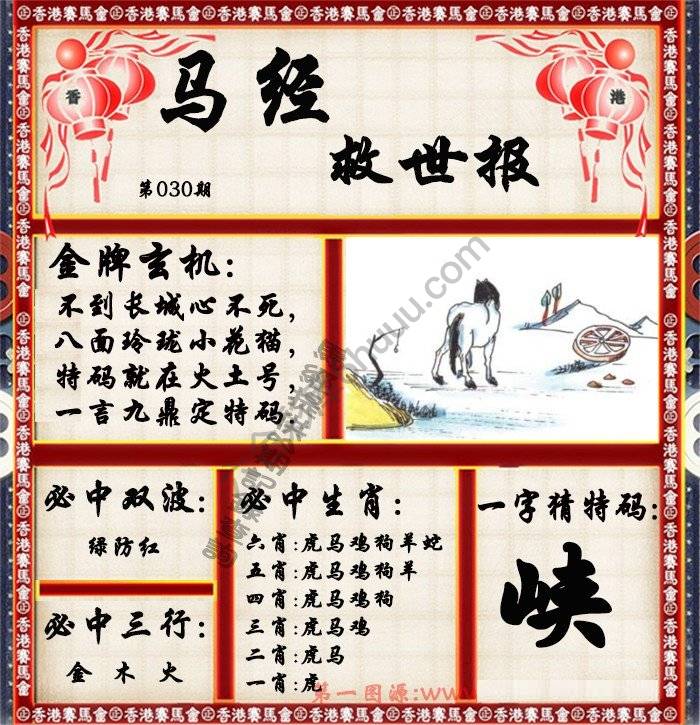 香港賽馬會
香
港
马经
救世报
第030期
金牌玄机:
不到长城心不死,
八面玲珑小花猫,
特码就在火土号,
一言九鼎定特码.
必中双波:
绿防红
必中三行:
金木火
必中生肖:
六肖:虎马鸡狗羊蛇
五肖:虎马鸡狗羊
四肖:虎马鸡狗
三肖:虎马鸡
二肖:虎马
一肖:虎
一字猜特码:
峡
第一图源:www